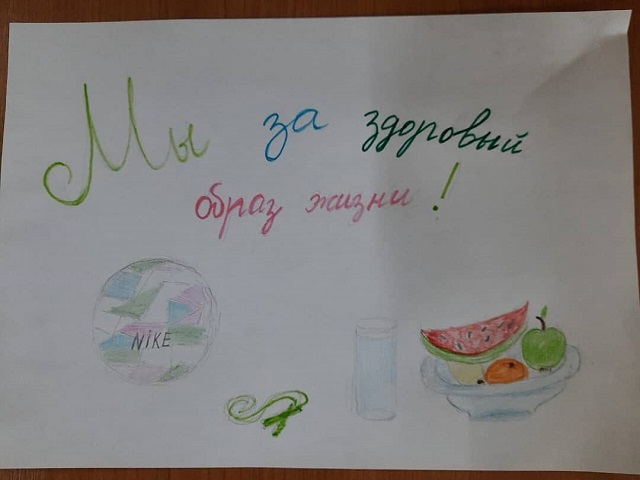 Мы за здоровый
образ жизни!
NIKE